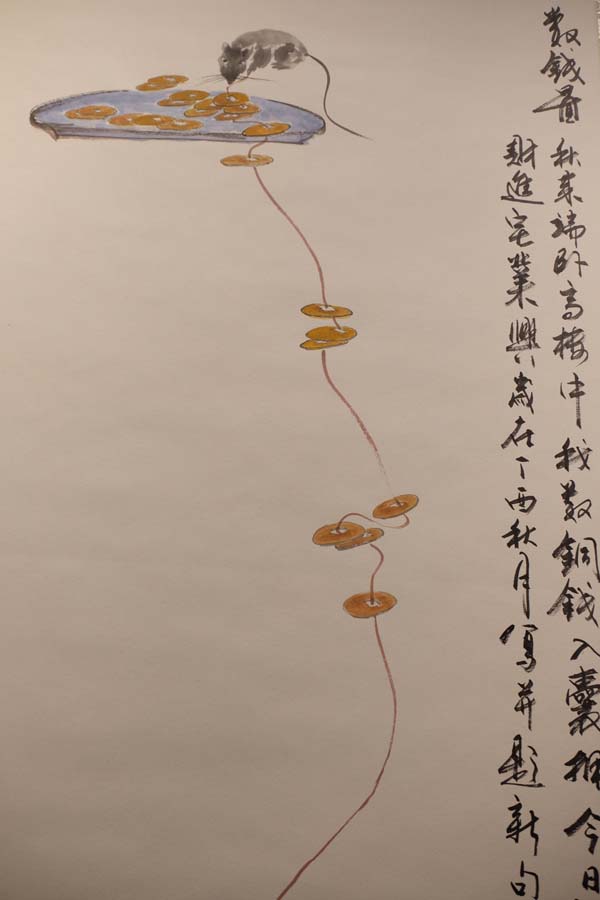 數錢啚
秋來瑞卧高樓中我數銅錢入囊今日
財進宅業興歲在丁酉秋月寫并題新句